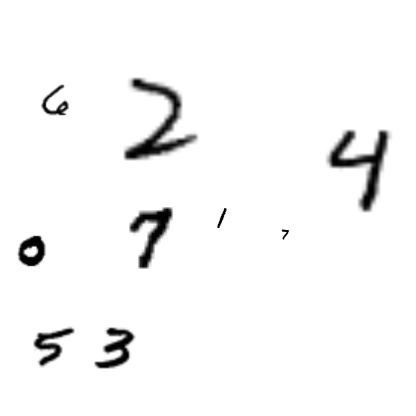 6 2 4
0 7 1 7
5 3